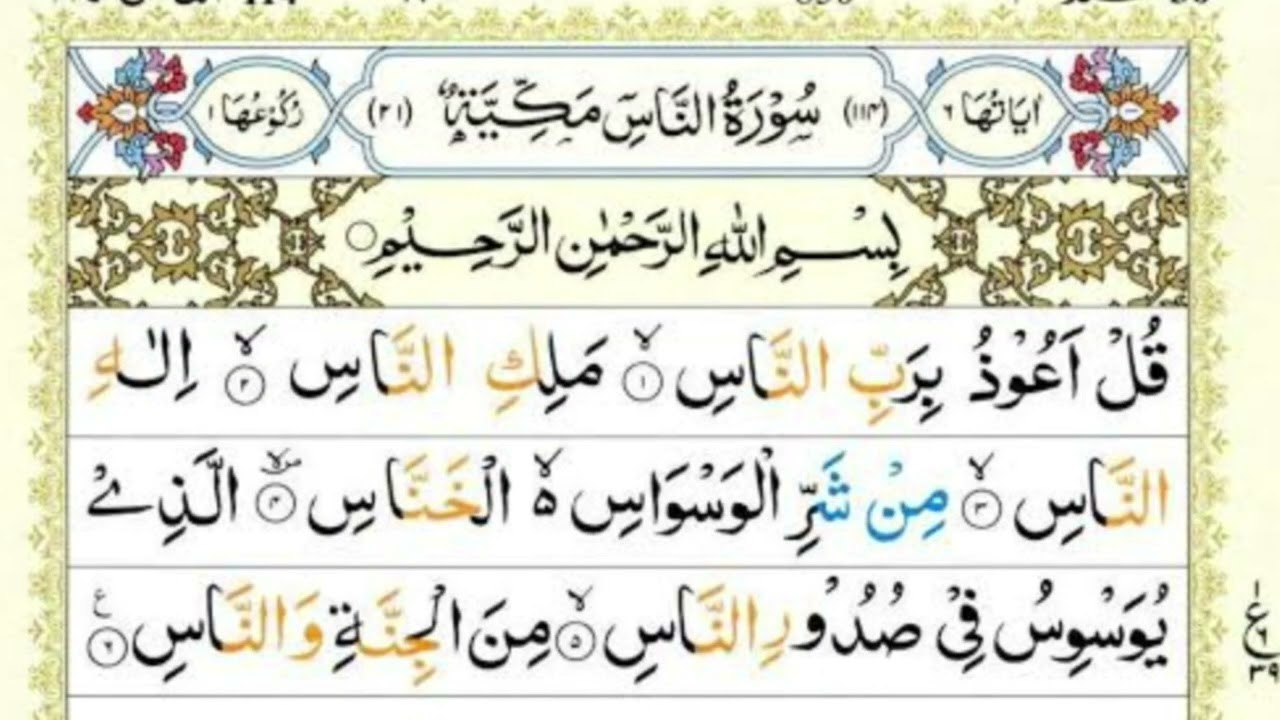 اٰيَاتُهَا ٦ (١١٤) سُوْرَةُ النَّاسِ مَكِّيَّةٌ (٢١) رُكُوْعُهَا ١
بِسْمِ اللّٰهِ الرَّحْمٰنِ الرَّحِيْمِ
قُلْ اَعُوْذُ بِرَبِّ النَّاسِ ۙ﴿١﴾ مَلِكِ النَّاسِ ۙ﴿٢﴾ اِلٰهِ
النَّاسِ ۙ﴿٣﴾ مِنْ شَرِّ الْوَسْوَاسِ ۙ۬ الْخَنَّاسِ ۪ۙ﴿٤﴾ الَّذِیْ
يُوَسْوِسُ فِیْ صُدُوْرِ النَّاسِ ۙ﴿٥﴾ مِنَ الْجِنَّةِ وَالنَّاسِ ﴿٦﴾ ع
ع
١
٦
٣٩